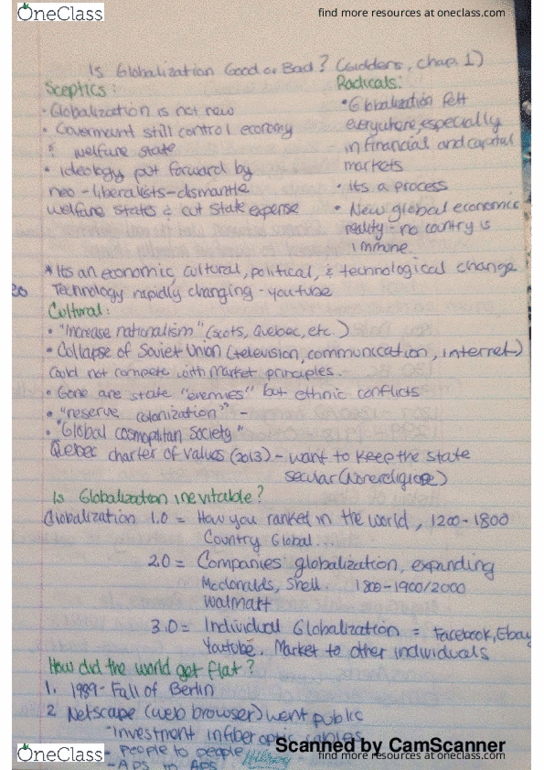 OneClass
find more resources at oneclass.com
Is Globalization Good or Bad? (Giddens, chap. 1)
Sceptics:
• Globalization is not new
• Government still control economy
& welfare state
• Ideology put forward by
neo-liberalists-dismantle
welfare states & cut state expense
Radicals:
• Globalization felt
everywhere, especially
in financial and capital
markets
• Its a process
• New global economic
reality - no country is
immune.
* Its an economic, cultural, political, & technological change
Technology rapidly changing - youtube
Cultural:
• "Increase nationalism" (scots, Quebec, etc.)
• Collapse of Soviet Union (television, communication, internet)
Could not compete with market principles.
• Gone are state "enemies" but ethnic conflicts
• "reserve colonization" -
• "Global cosmopolitan Society"
Quebec charter of values (2013) - want to keep the state
secular (Nonreligious)
Is Globalization inevitable?
Globalization 1.0 = How you ranked in the world, 1200-1800
Country Global...
2.0 = Companies globalization, expanding
McDonalds, Shell. 1800-1900/2000
Walmart
3.0 = Individual Globalization = Facebook, Ebay
Youtube. Market to other individuals
How did the world get flat?
1. 1989 - Fall of Berlin
2. Netscape (web browser) went public
- Investment in fiber optic cables
- people to people
- APS to APS
Scanned by CamScanner
OneClass
find more resources at oneclass.com